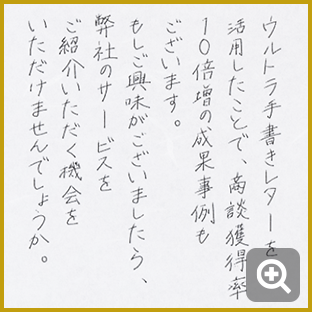 ウルトラ手書きレターを
活用したことで、商談獲得率
10倍増の成果事例も
ございます。
もしご興味がございましたら、
弊社のサービスを
ご紹介いただく機会を
いただけませんでしょうか。